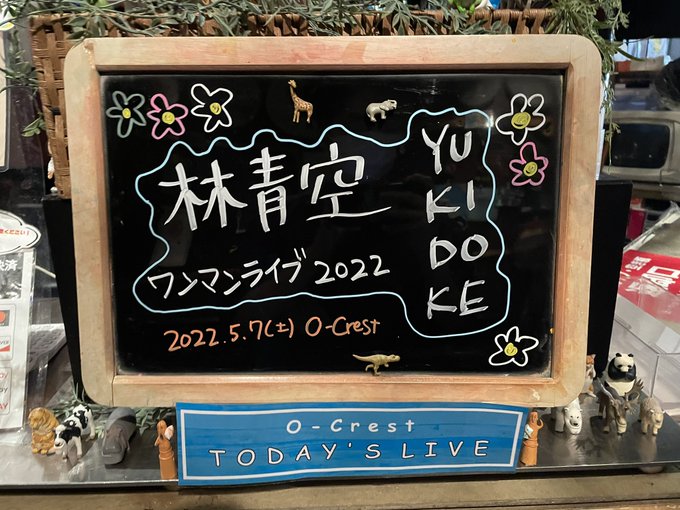 林青空
ワンマンライブ 2022
YU
KI
DO
KE
2022.5.7(土) O-Crest
O-Crest
TODAY'S LIVE